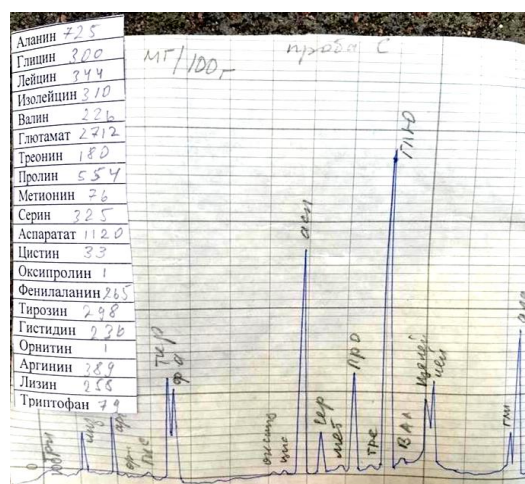 Аланин 725
Глицин 300
Лейцин 344
Изолейцин 310
Валин 226
Глютамат 2712
Треонин 180
Пролин 554
Метионин 76
Серин 325
Аспаратат 1120
Цистин 33
Оксипролин 1
Фенилаланин 265
Тирозин 298
Гистидин 236
Орнитин 1
Аргинин 389
Лизин 258
Триптофан 79
мг/100г
проба С
асп
глю
тир
фа
сер
мет
про
тре
вал
изолей
лей
гли
ала